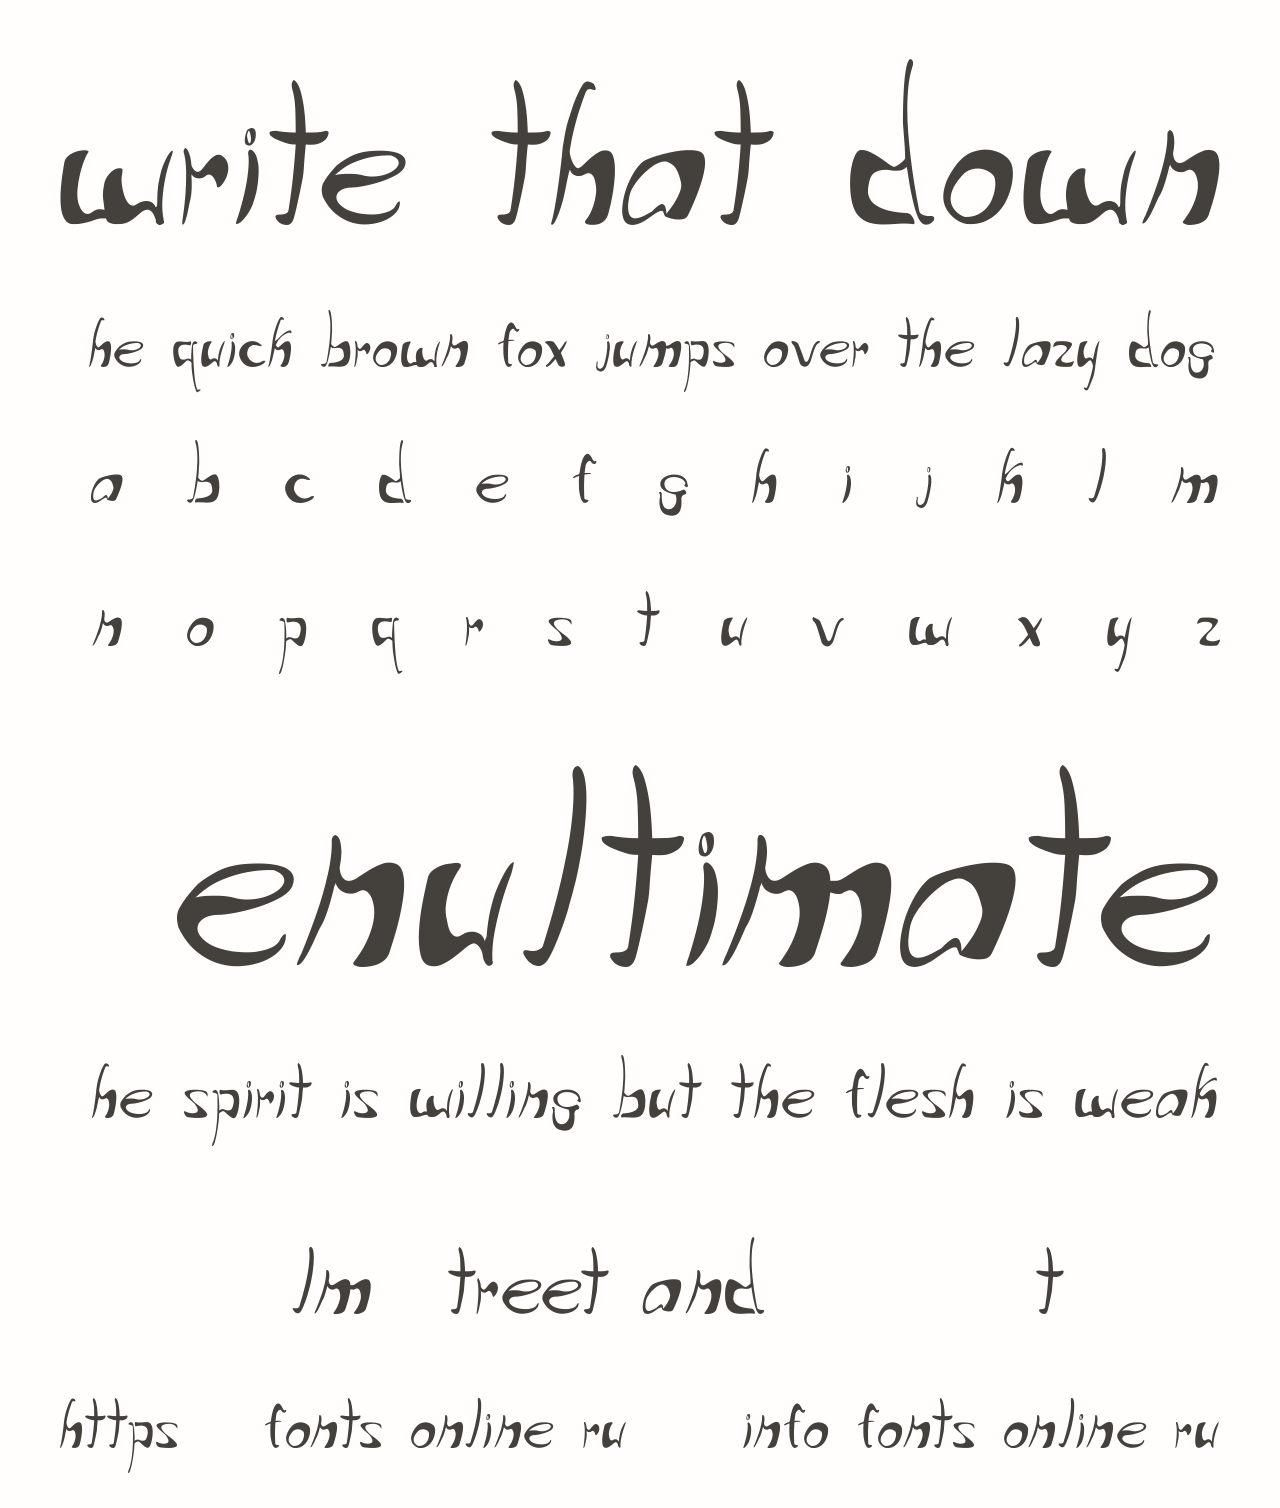 write that down
he quick brown fox jumps over the lazy dog
a b c d e f g h i j k l m
n o p q r s t u v w x y z
enultimate
he spirit is willing but the flesh is weak
lm treet and t
https fonts online ru info fonts online ru